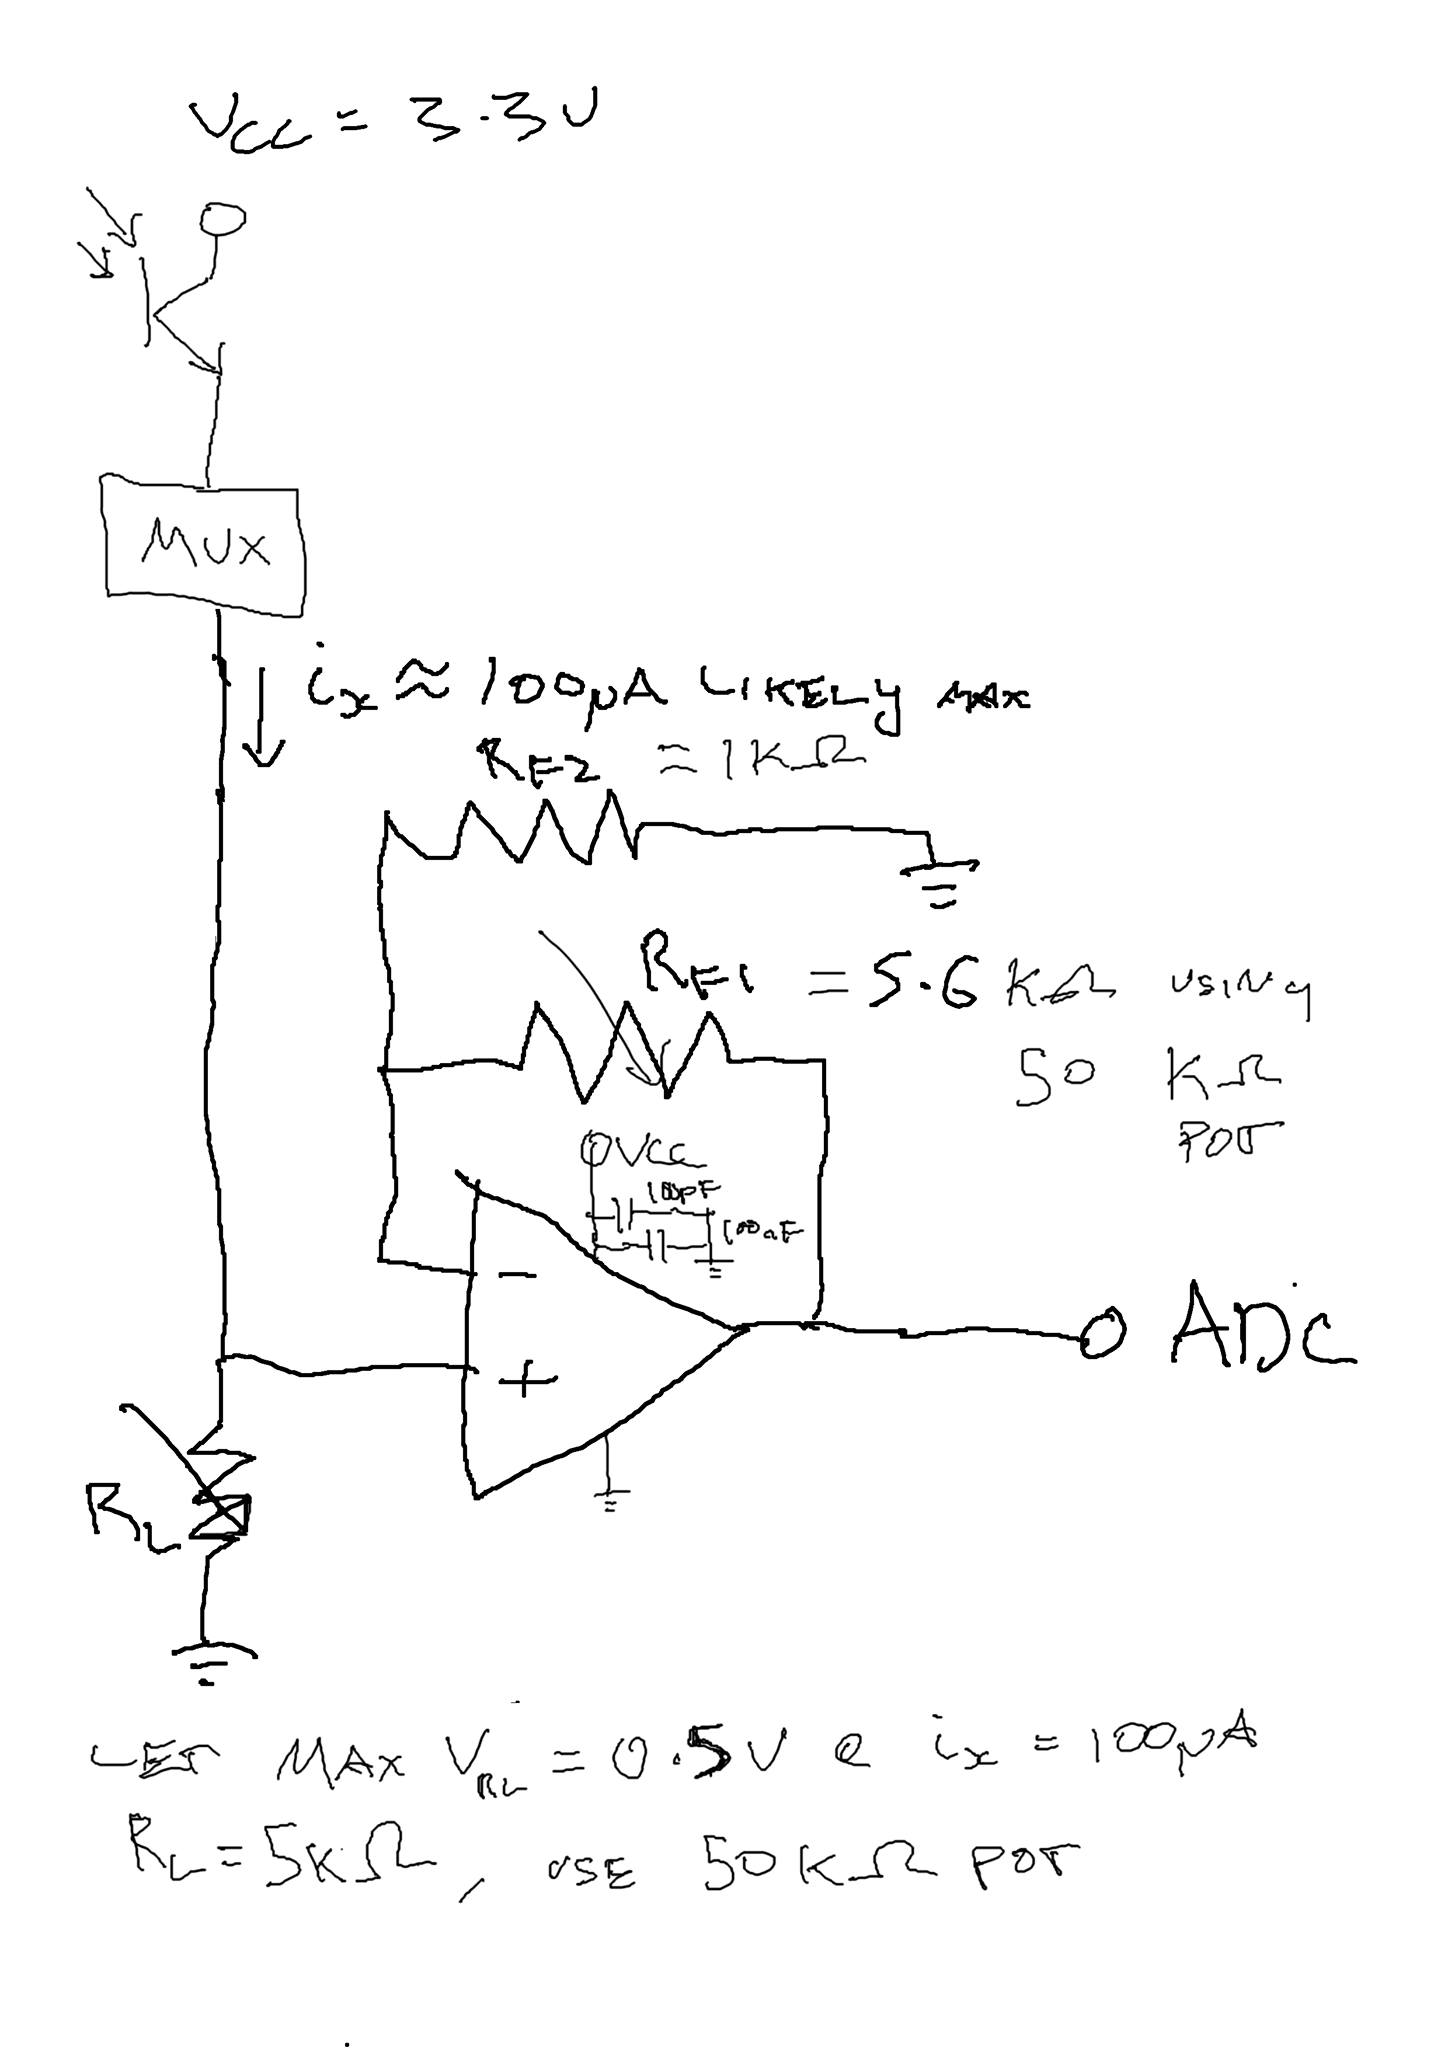 VCC = 3.3V
MUX
ix ≈ 100μA LIKELY MAX
RF2 = 1KΩ
RF1 = 5.6 KΩ USING
50 KΩ
POT
VCC
100pF
100nF
-
+
ADC
RL
LET MAX VRL = 0.5V @ ix = 100μA
RL = 5KΩ, USE 50KΩ POT